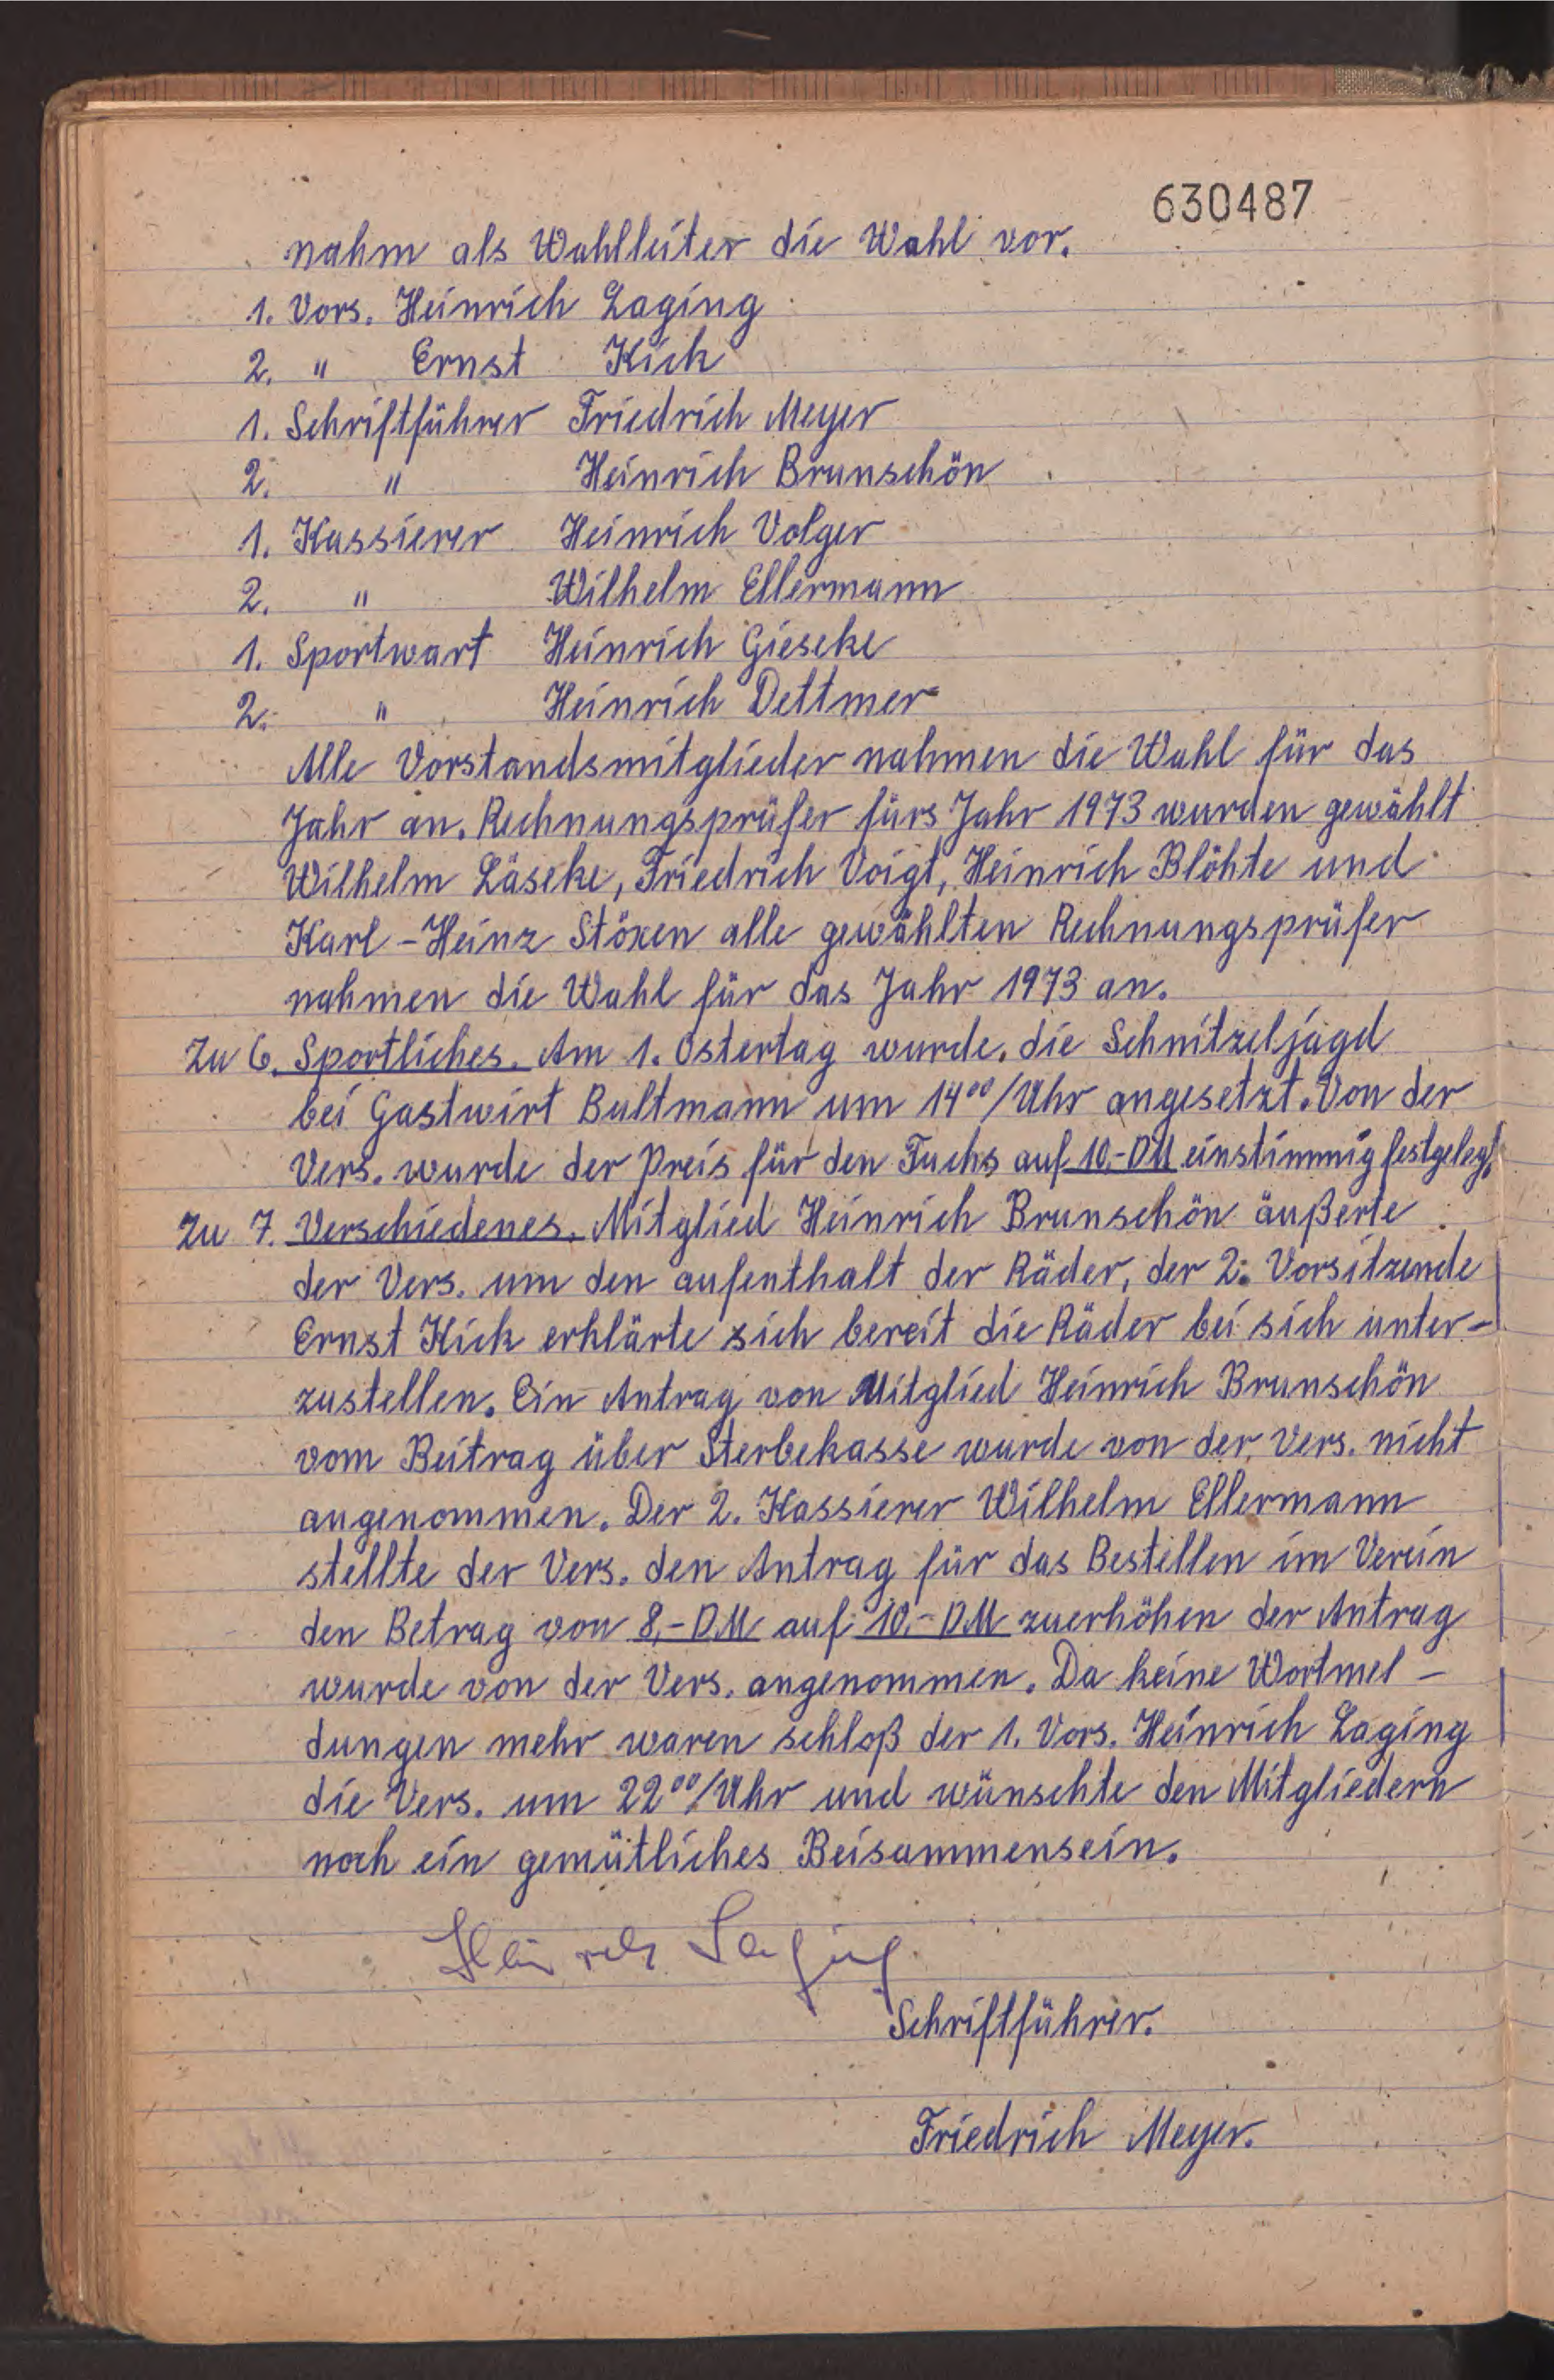 630487
nahm als Wahlleiter die Wahl vor.
1. Vors. Heinrich Laging
2. " Ernst Kick
1. Schriftführer Friedrich Meyer
2. " Heinrich Brunschön
1. Kassierer Heinrich Volger
2. " Wilhelm Ellermann
1. Sportwart Heinrich Gieseke
2. " Heinrich Dettmer
Alle Vorstandsmitglieder nahmen die Wahl für das
Jahr an. Rechnungsprüfer fürs Jahr 1973 wurden gewählt
Wilhelm Läseke, Friedrich Voigt, Heinrich Blöhte und
Karl-Heinz Stöxen alle gewählten Rechnungsprüfer
nahmen die Wahl für das Jahr 1973 an.
Zu 6. Sportliches. Am 1. Ostertag wurde. die Schnitzeljagd
bei Gastwirt Bultmann um 14⁰⁰/Uhr angesetzt. Von der
Vers. wurde der Preis für den Fuchs auf 10,-DM einstimmig festgelegt.
Zu 7. Verschiedenes. Mitglied Heinrich Brunschön äußerte
der Vers. um den aufenthalt der Räder, der 2. Vorsitzende
Ernst Kick erklärte sich bereit die Räder bei sich unter-
zustellen. Ein Antrag von Mitglied Heinrich Brunschön
vom Beitrag über Sterbekasse wurde von der Vers. nicht
angenommen. Der 2. Kassierer Wilhelm Ellermann
stellte der Vers. den Antrag für das Bestellen im Verein
den Betrag von 8,-DM auf 10,-DM zuerhöhen der Antrag
wurde von der Vers. angenommen. Da keine Wortmel-
dungen mehr waren schloß der 1. Vors. Heinrich Laging
die Vers. um 22⁰⁰/Uhr und wünschte den Mitgliedern
noch ein gemütliches Beisammensein.
Heinrich Laging
Schriftführer.
Friedrich Meyer.